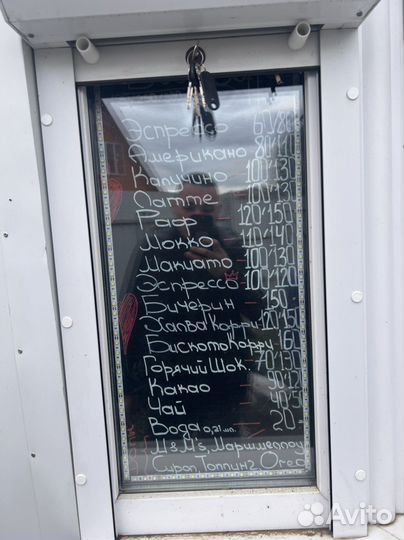 Эспрессо 60/80
Американо 80
Капучино 100/130
Латте 100/130
Раф 120/150
Мокко 110/140
Макиато 100/130
Эспрессо 100/120
Бичерин 150
Халва Корри 120/15
Бискотокорри 160
Горячий Шок. 70/130
Какао 90/12
Чай 40/5
Вода 0,2 20
M&M's, Маршмеллоу
Сироп Топпинг Oreo
Avito